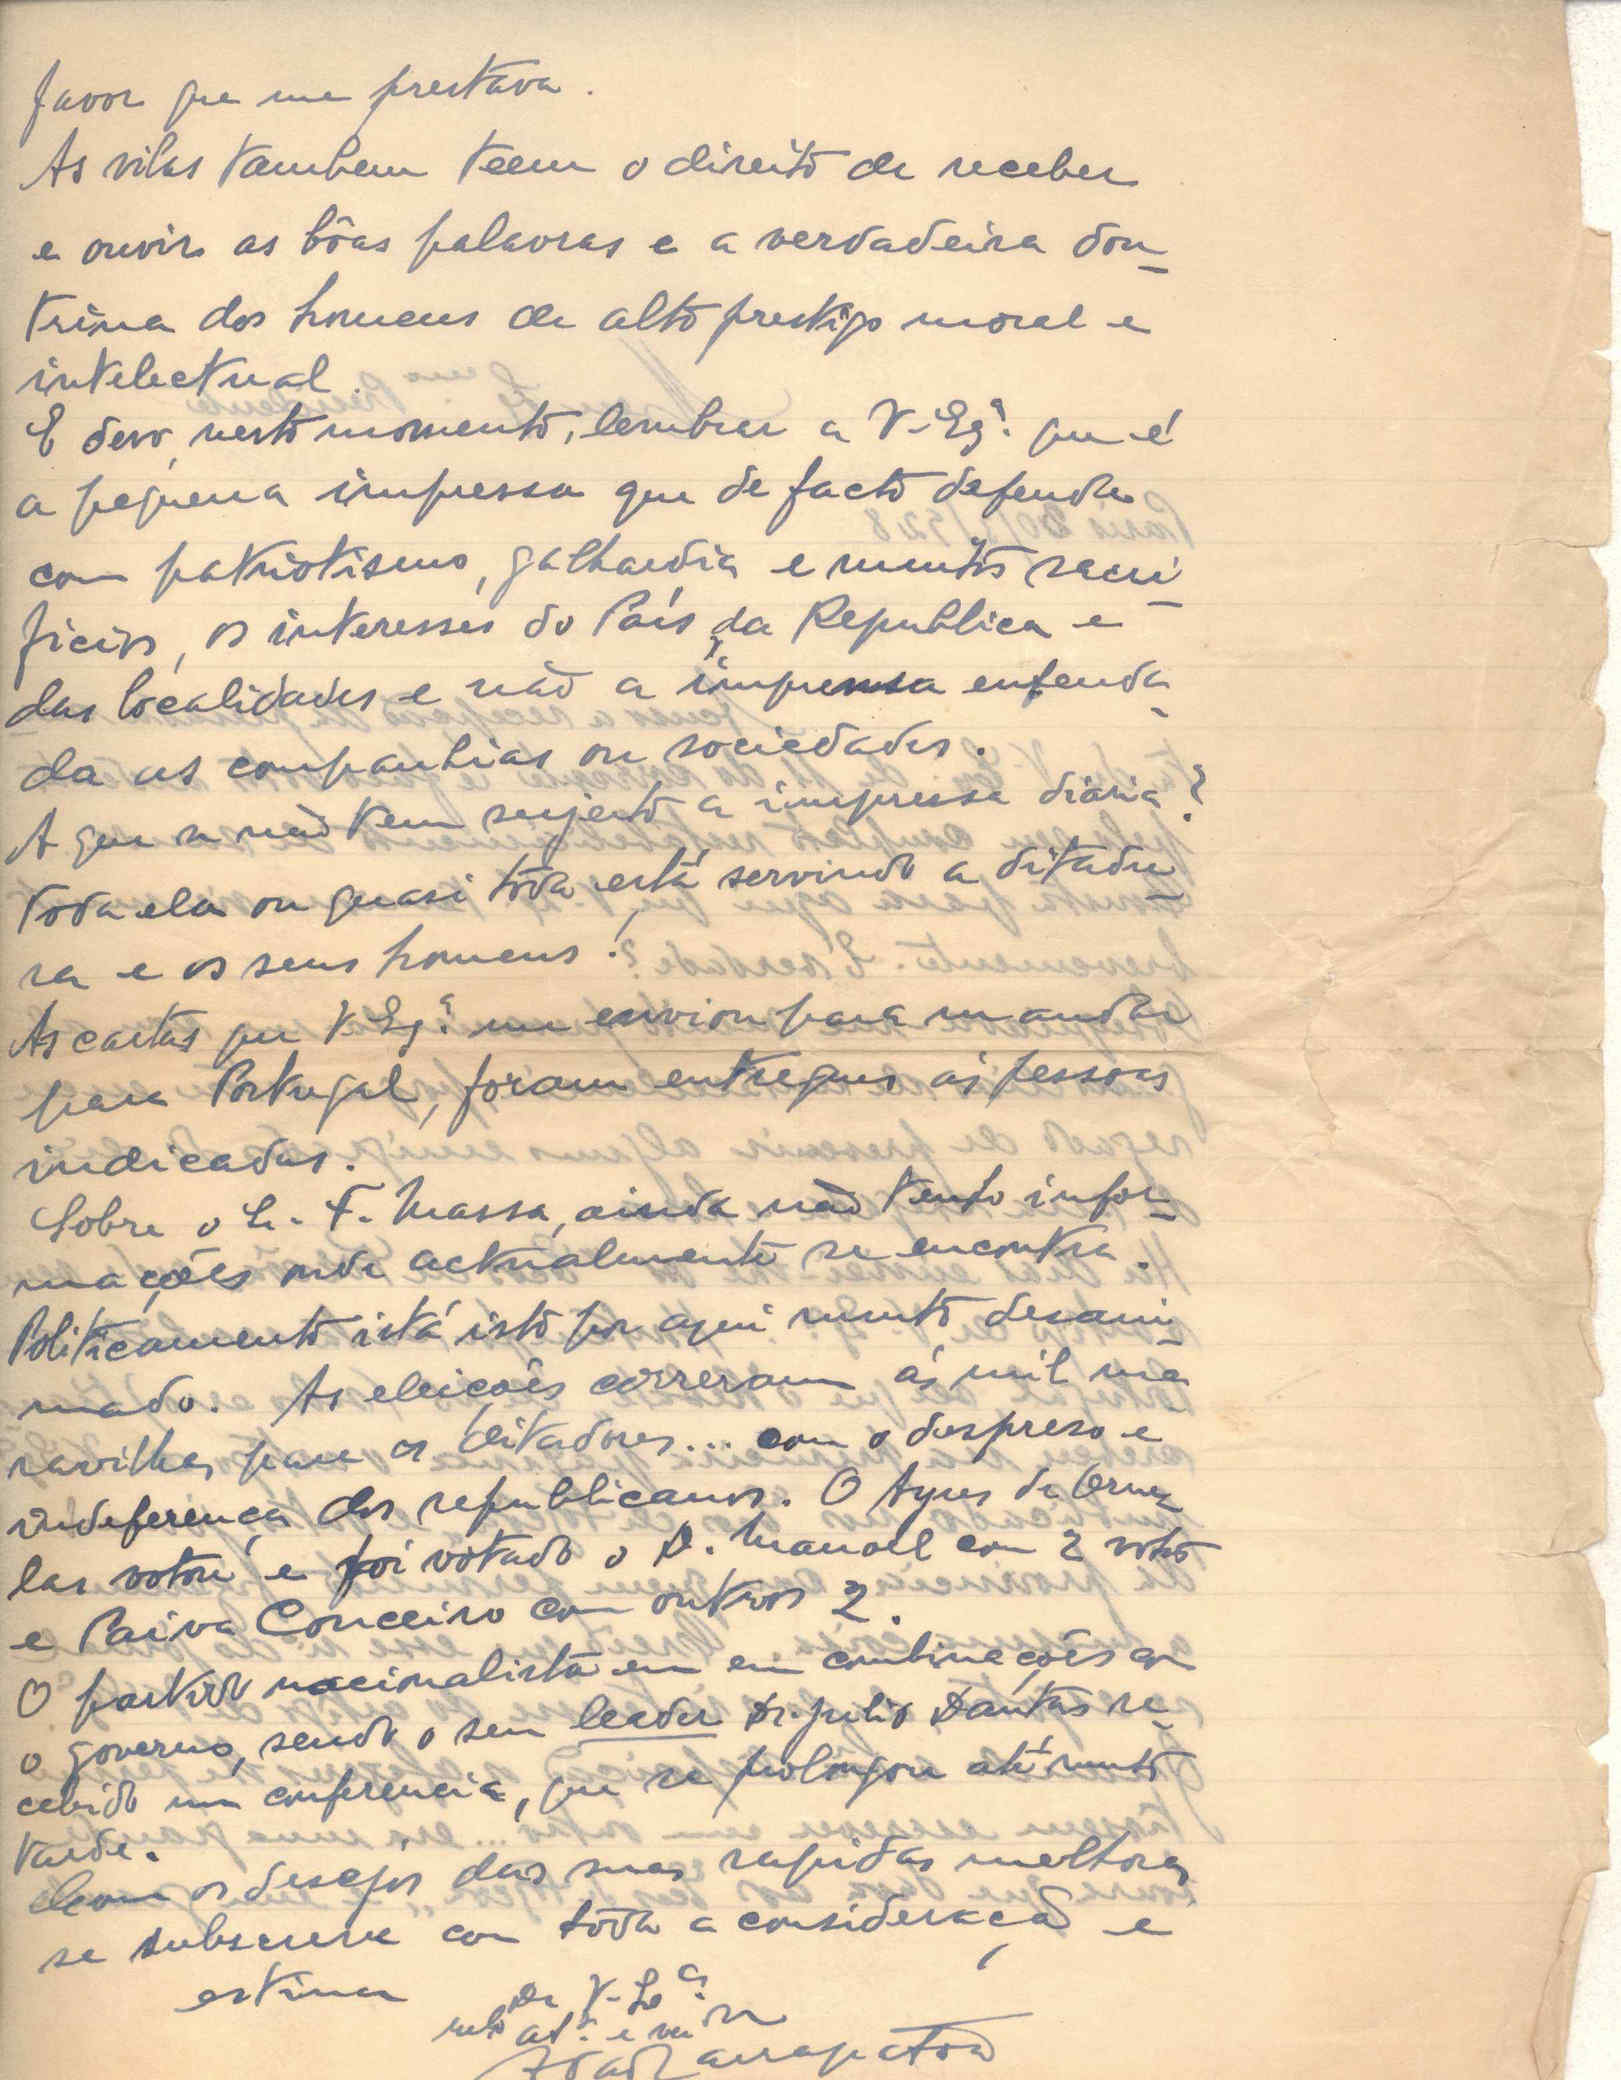 favor que me prestava.
As vilas tambem teem o direito de receber
e ouvir as bôas palavras e a verdadeira dou-
trina dos homens de alto prestigo moral e
intelectual.
E devo, nesto momento, lembrar a V. Exª. que é
a pequena impressa que de facto defende
com patriotismo, galhardia e muitos sacri-
ficios, os interesses do País, da Republica e
das localidades e não a imprensa enfeuda-
da as companhias ou sociedades.
A que se não tem sujeito a impressa diaria?
Toda ela ou quasi tôda está servindo a ditadu-
ra e os seus homens!
As cartas que V. Exª. me enviou para mandar
para Portugal, foram entregues ás pessoas
indicadas.
Sobre o F. Massa, ainda não tenho infor-
mações onde actualmente se encontra.
Politicamente istá isto por aqui muito desani-
mado. As eleições correram ás mil ma-
ravilhas para os ditadores... com o despreso e
indeferença dos republicanos. O Ayres de Ornel-
las votou e foi votado o D. Manoel com 2 votos
e Paiva Conceiro com outros 2.
O partido nacionalista em combinações com
o governo, sendo o seu leader Dr. Julio Dantas re-
cebido em conferencia, que se prolongou até muito
tarde.
Com os desejos das suas rapidas melhoras
se subscreve com toda a consideração e
estima
De V. Exª.